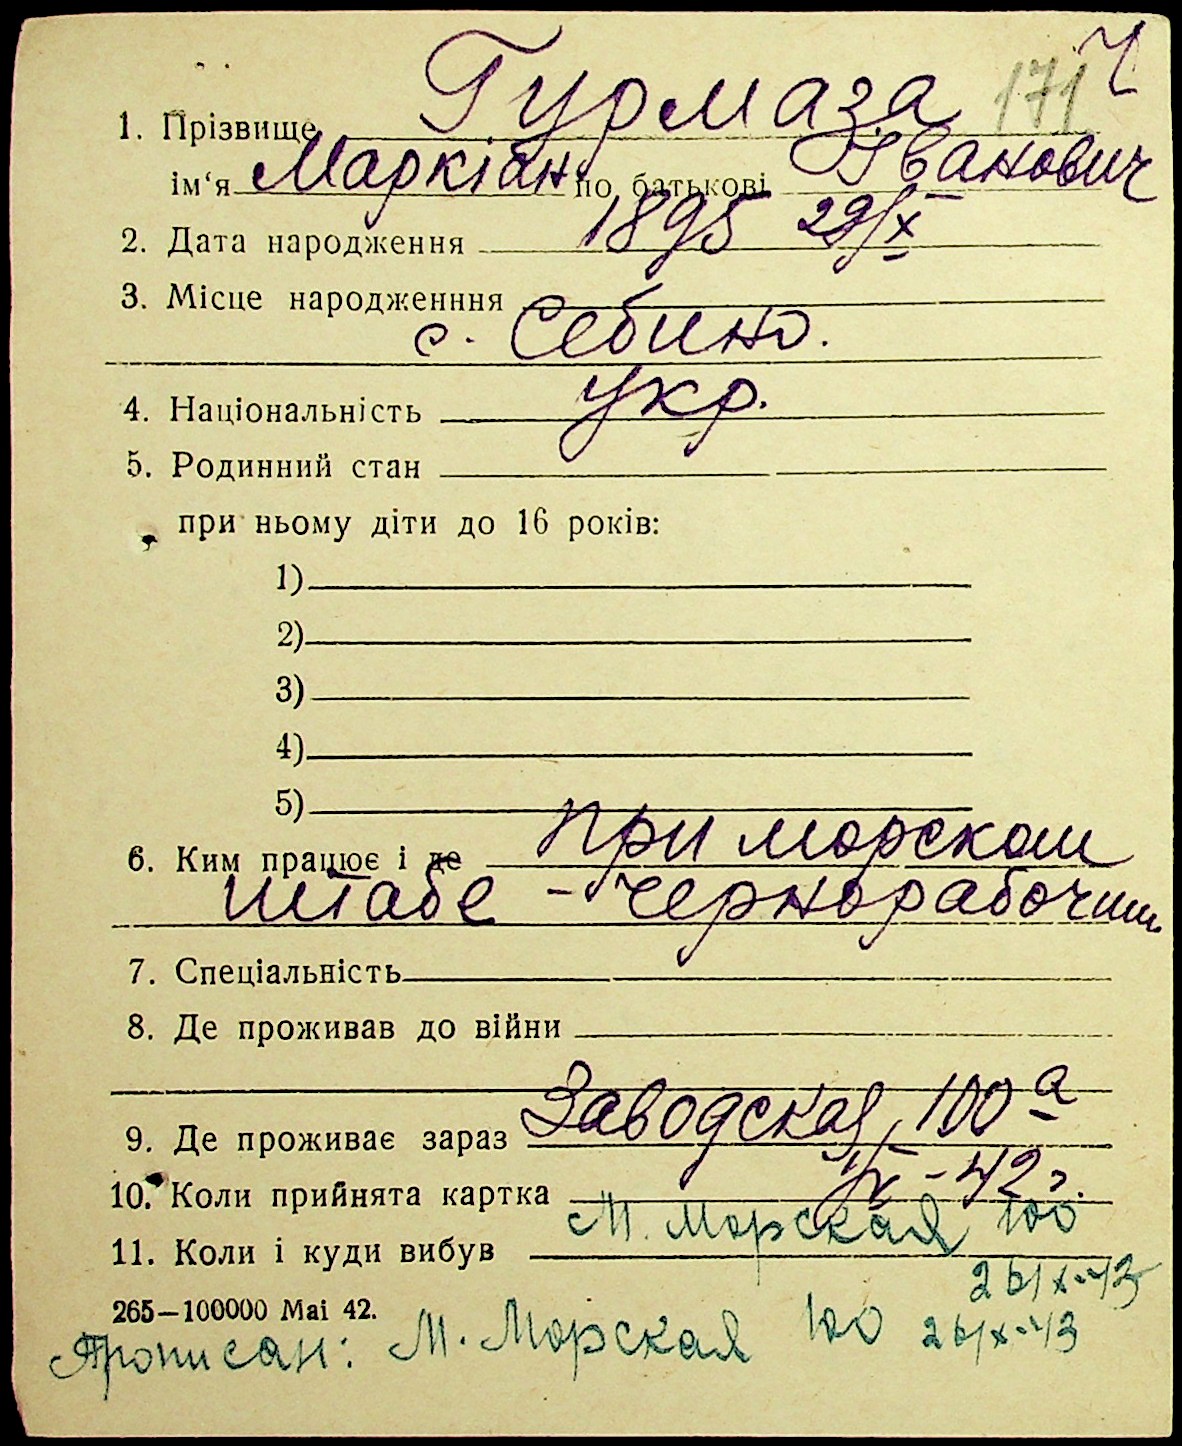 Ч
171
1. Прізвище Гурмаза
ім‘я Маркіан по батькові Іванович
2. Дата народження 1895 29/X
3. Місце народженння
с. Себино.
4. Національність укр.
5. Родинний стан
при ньому діти до 16 років:
1)
2)
3)
4)
5)
6. Ким працює і де при морском
штабе - чернорабочим.
7. Спеціальність
8. Де проживав до війни
9. Де проживає зараз Заводская, 100 а
10. Коли прийнята картка -42 г.
11. Коли і куди вибув М. Морская 100
26/X-43
265—100000 Mai 42.
Прописан: М. Морская 100 26/X-43